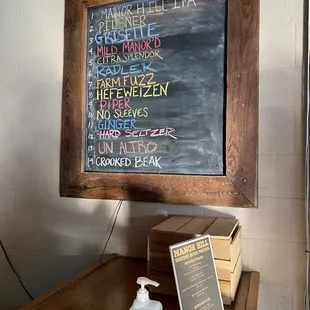 1 MANOR HILL IPA
2 PILSNER
3 GRISETTE
4 MILD MANOR'D
5 CITRA SPLENDOR
6 KADLER
7 FARM FUZZ
8 HEFEWEIZEN
9 PIPER
10 NO SLEEVES
11 GINGER
12 HARD SELTZER
13 UN ALTRO
14 CROOKED BEAK
MANOR HILL